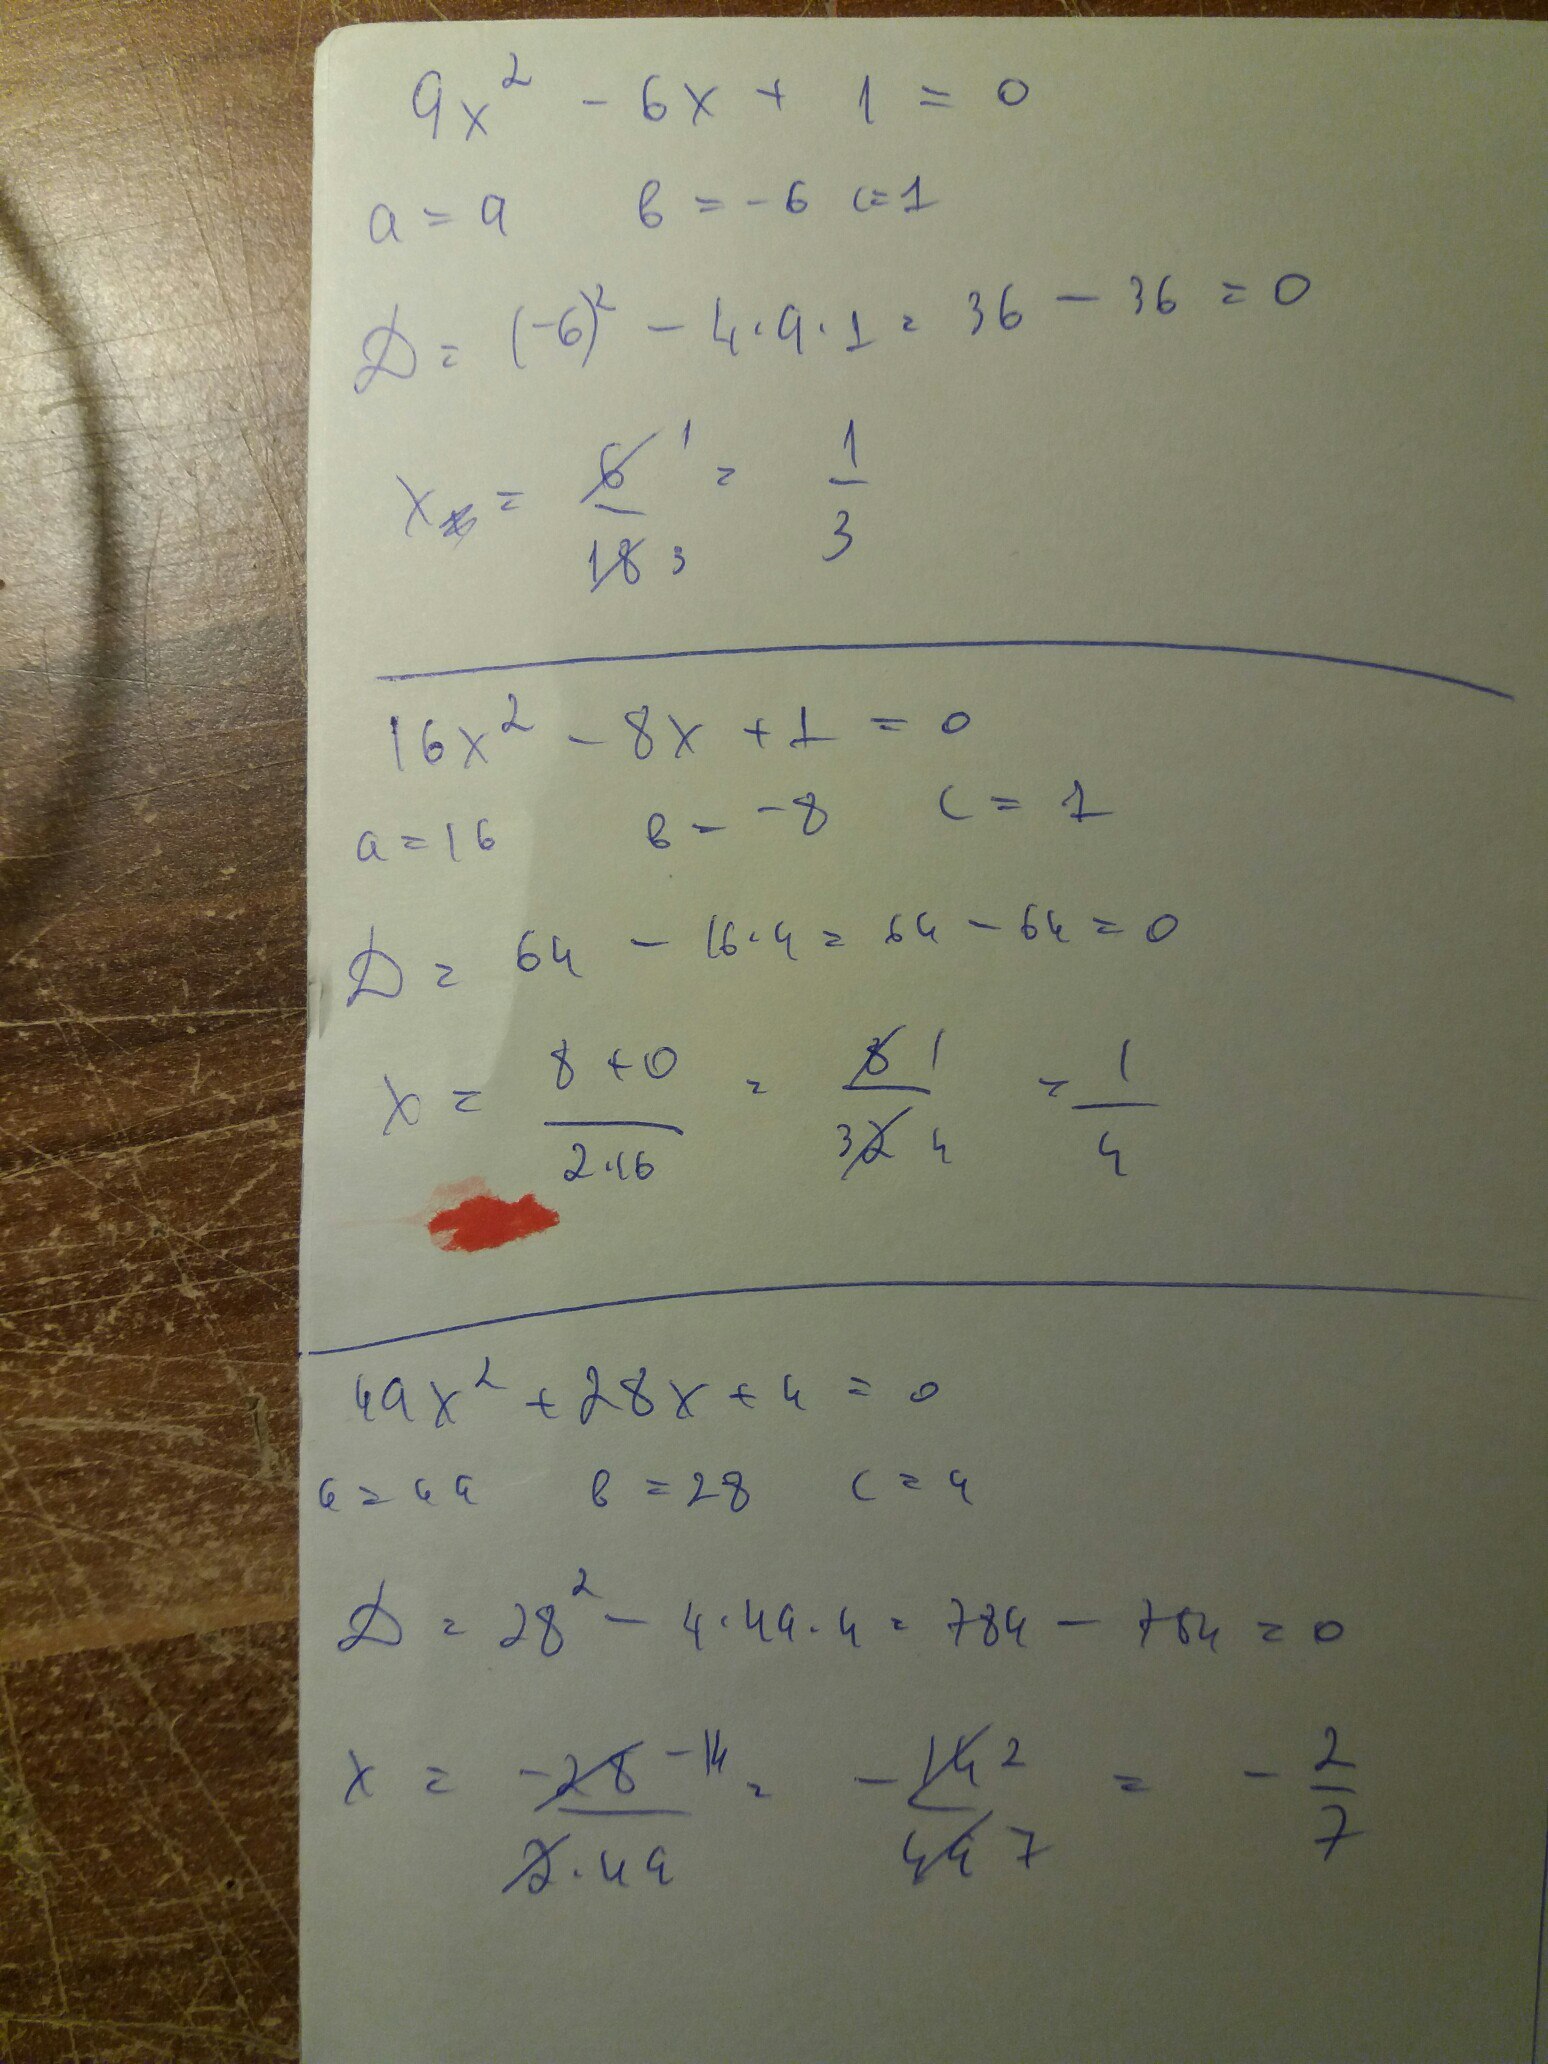 9x² - 6x + 1 = 0
a = 9 b = -6 c = 1
D = (-6)² - 4·9·1 = 36 - 36 = 0
x = 6 1 / 18 3 = 1/3
16x² - 8x + 1 = 0
a = 16 b = -8 c = 1
D = 64 - 16·4 = 64 - 64 = 0
x = 8 + 0 / 2·16 = 8 1 / 32 4 = 1/4
49x² + 28x + 4 = 0
a = 49 b = 28 c = 4
D = 28² - 4·49·4 = 784 - 784 = 0
x = -28 -14 / 2·49 = - 14 2 / 49 7 = - 2/7